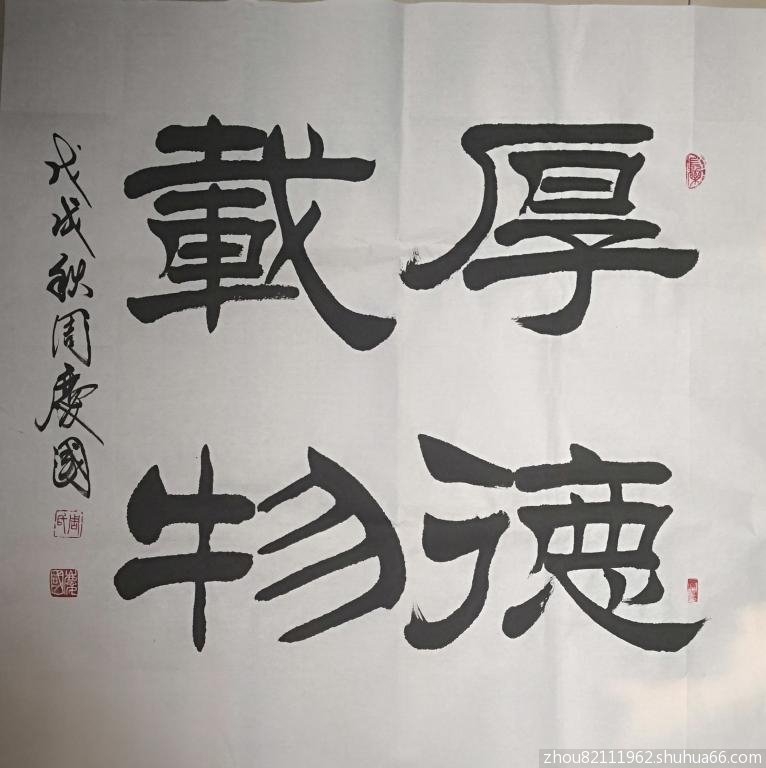 厚德
載物
戊戌秋周慶國
慶國
zhou82111962.shuhua66.com